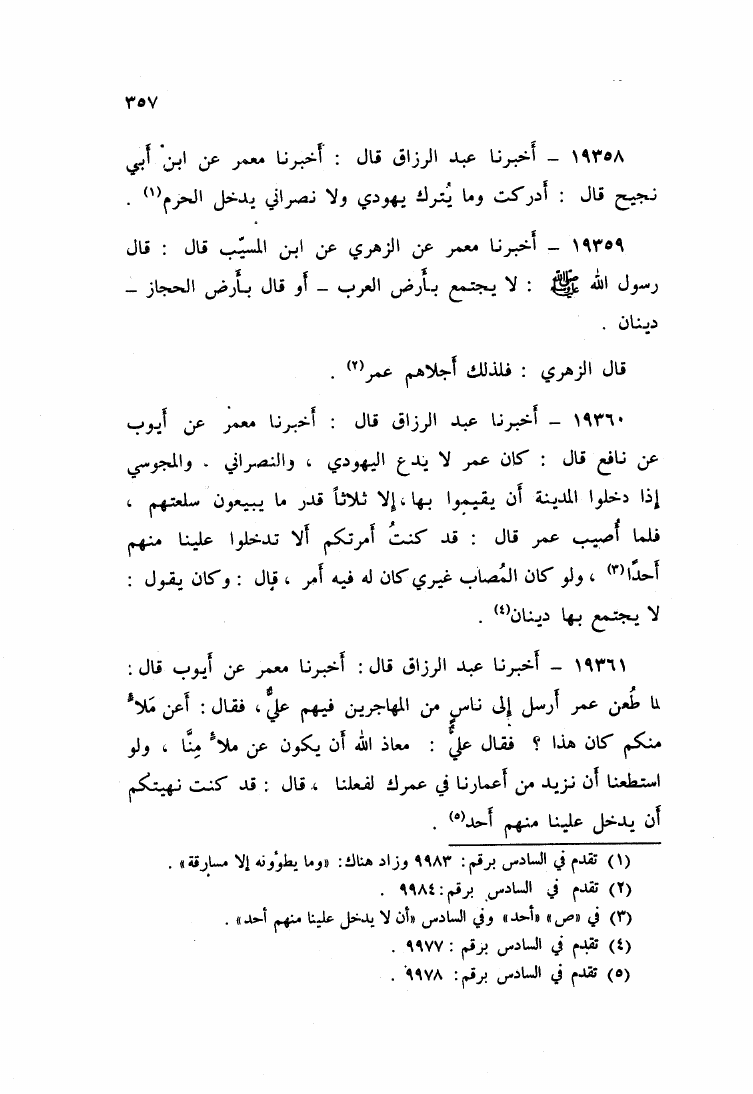 ٣٥٧
١٩٣٥٨ – أخبرنا عبد الرزاق قال : أخبرنا معمر عن ابن أبي
نجيح قال : أدركت وما يُترك يهودي ولا نصراني يدخل الحرم(١) .
١٩٣٥٩ – أخبرنا معمر عن الزهري عن ابن المسيّب قال : قال
رسول الله ﷺ : لا يجتمع بأرض العرب – أو قال بأرض الحجاز –
دينان .
قال الزهري : فلذلك أجلاهم عمر(٢) .
١٩٣٦٠ – أخبرنا عبد الرزاق قال : أخبرنا معمر عن أيوب
عن نافع قال : كان عمر لا يدع اليهودي ، والنصراني ، والمجوسي
إذا دخلوا المدينة أن يقيموا بها ، إلا ثلاثاً قدر ما يبيعون سلعتهم ،
فلما أُصيب عمر قال : قد كنتُ أمرتكم ألا تدخلوا علينا منهم
أحدًا(٣) ، ولو كان المُصاب غيري كان له فيه أمر ، قال : وكان يقول :
لا يجتمع بها دينان(٤) .
١٩٣٦١ – أخبرنا عبد الرزاق قال : أخبرنا معمر عن أيوب قال :
لما طُعن عمر أرسل إلى ناس من المهاجرين فيهم عليٌّ ، فقال : أعن مَلاءٌ
منكم كان هذا ؟ فقال عليٌّ : معاذ الله أن يكون عن ملاءٌ مِنَّا ، ولو
استطعنا أن نزيد من أعمارنا في عمرك لفعلنا ، قال : قد كنت نهيتكم
أن يدخل علينا منهم أحد(٥) .
(١) تقدم في السادس برقم : ٩٩٨٣ وزاد هناك : «وما يطوٴونه إلا مسارقة» .
(٢) تقدم في السادس برقم : ٩٩٨٤ .
(٣) في «ص» «أحد» وفي السادس «أن لا يدخل علينا منهم أحد» .
(٤) تقدم في السادس برقم : ٩٩٧٧ .
(٥) تقدم في السادس برقم : ٩٩٧٨ .